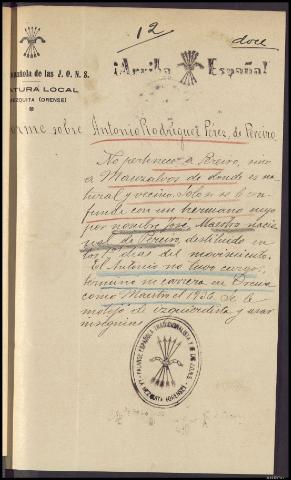 12
doce
¡Arriba España!
pañola de las J. O. N. S.
ATURA LOCAL
MEZQUITA (ORENSE)
orme sobre Antonio Rodríguez Pérez, de Pereiro.
No pertenece a Pereiro, sino
a Manzalvos de donde es na
tural y vecino. Solo se le con
funde con un hermano suyo
por nombre José, Maestro nacio
nal de Pereiro, destituido en
los días del movimiento.
El Antonio no tuvo cargos,
terminó su carrera en Orense
como Maestro el 1936. Se le
motejó de izquierdista y
ninguno
FALANGE ESPAÑOLA TRADICIONALISTA Y DE LAS J.O.N.S.
LA MEZQUITA (ORENSE)